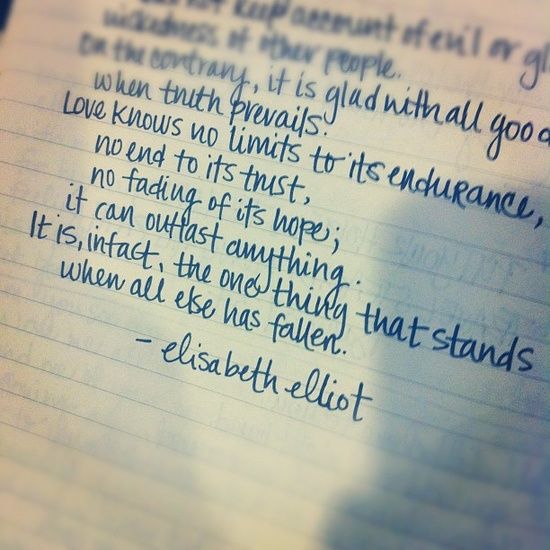 not keep account of evil or gl
wickedness of other people.
On the contrary, it is glad with all good
when truth prevails.
Love knows no limits to its endurance,
no end to its trust,
no fading of its hope;
it can outlast anything.
It is, infact, the one thing that stands
when all else has fallen.
- elisabeth elliot